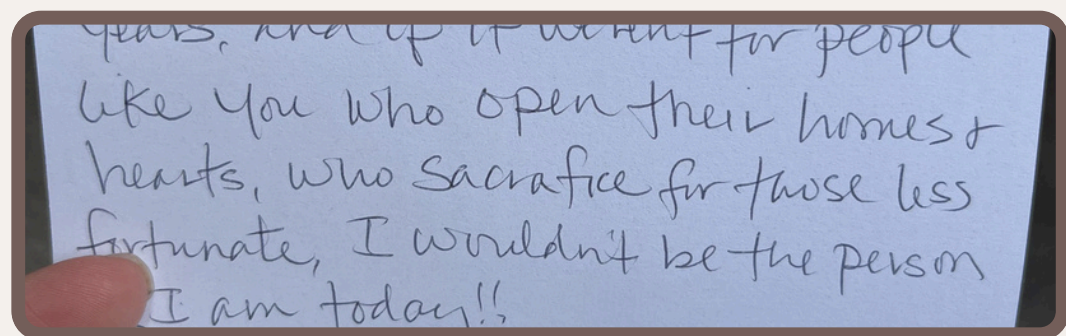 years, and if it weren't for people
like you who open their homes &
hearts, who sacrafice for those less
fortunate, I wouldn't be the person
I am today!!